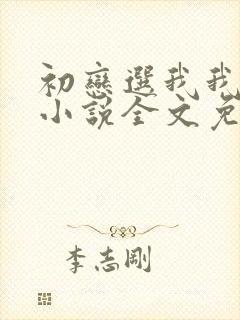 初戀選我我
小說全文免
李志剛